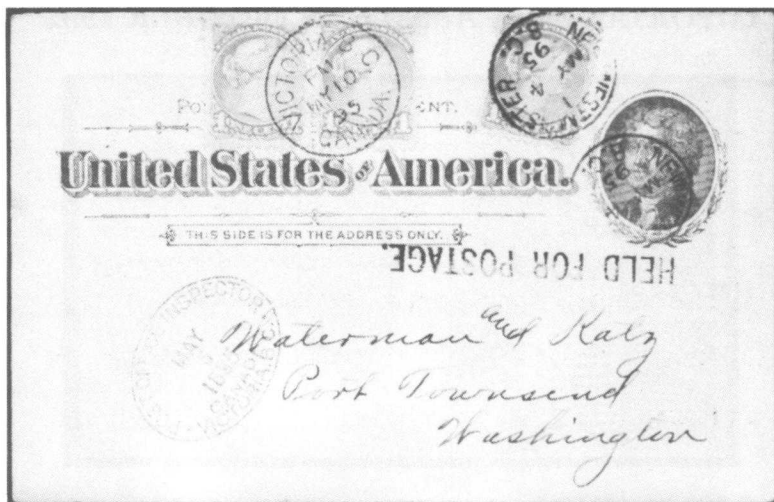 VICTORIA B.C.
PM
MY 10
95
CANADA.
NEW WESTMINSTER B.C.
MY
95
ENT.
United States of America.
THIS SIDE IS FOR THE ADDRESS ONLY.
HELD FOR POSTAGE.
POST OFFICE INSPECTOR
MAY
VICTORIA B.C.
Waterman and Katz
Port Townsend
Washington